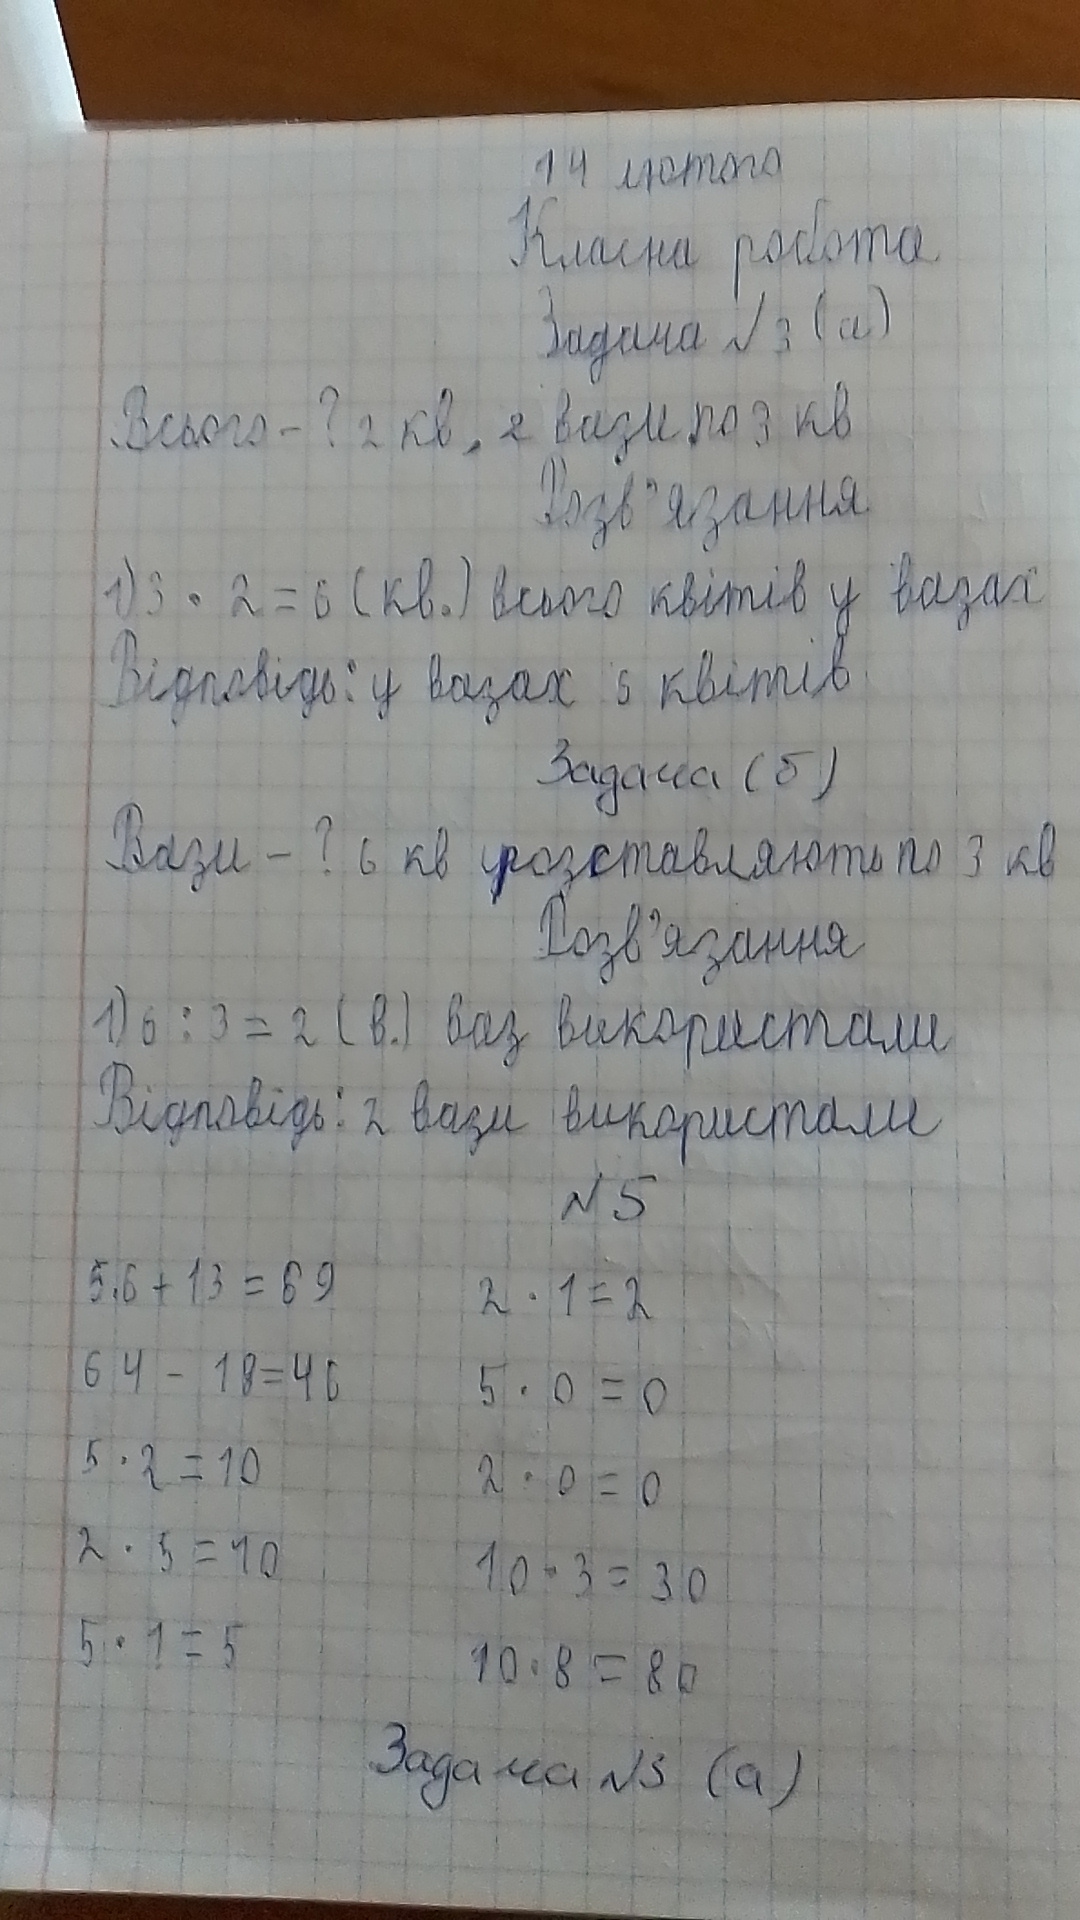 14 лютого
Класна робота
Задача №3 (а)
Всього - ? 2 кв, 2 вази по 3 кв
Розв'язання
1) 3 · 2 = 6 (кв.) всього квітів у вазах
Відповідь: у вазах 6 квітів
Задача (б)
Вази - ? 6 кв розставляють по 3 кв
Розв'язання
1) 6 : 3 = 2 (в.) ваз використали
Відповідь: 2 вази використали
№5
5.6 + 13 = 69 2 · 1 = 2
64 - 18 = 46 5 · 0 = 0
5 · 2 = 10 2 · 0 = 0
2 · 5 = 10 10 · 3 = 30
5 · 1 = 5 10 · 8 = 80
Задача №3 (а)